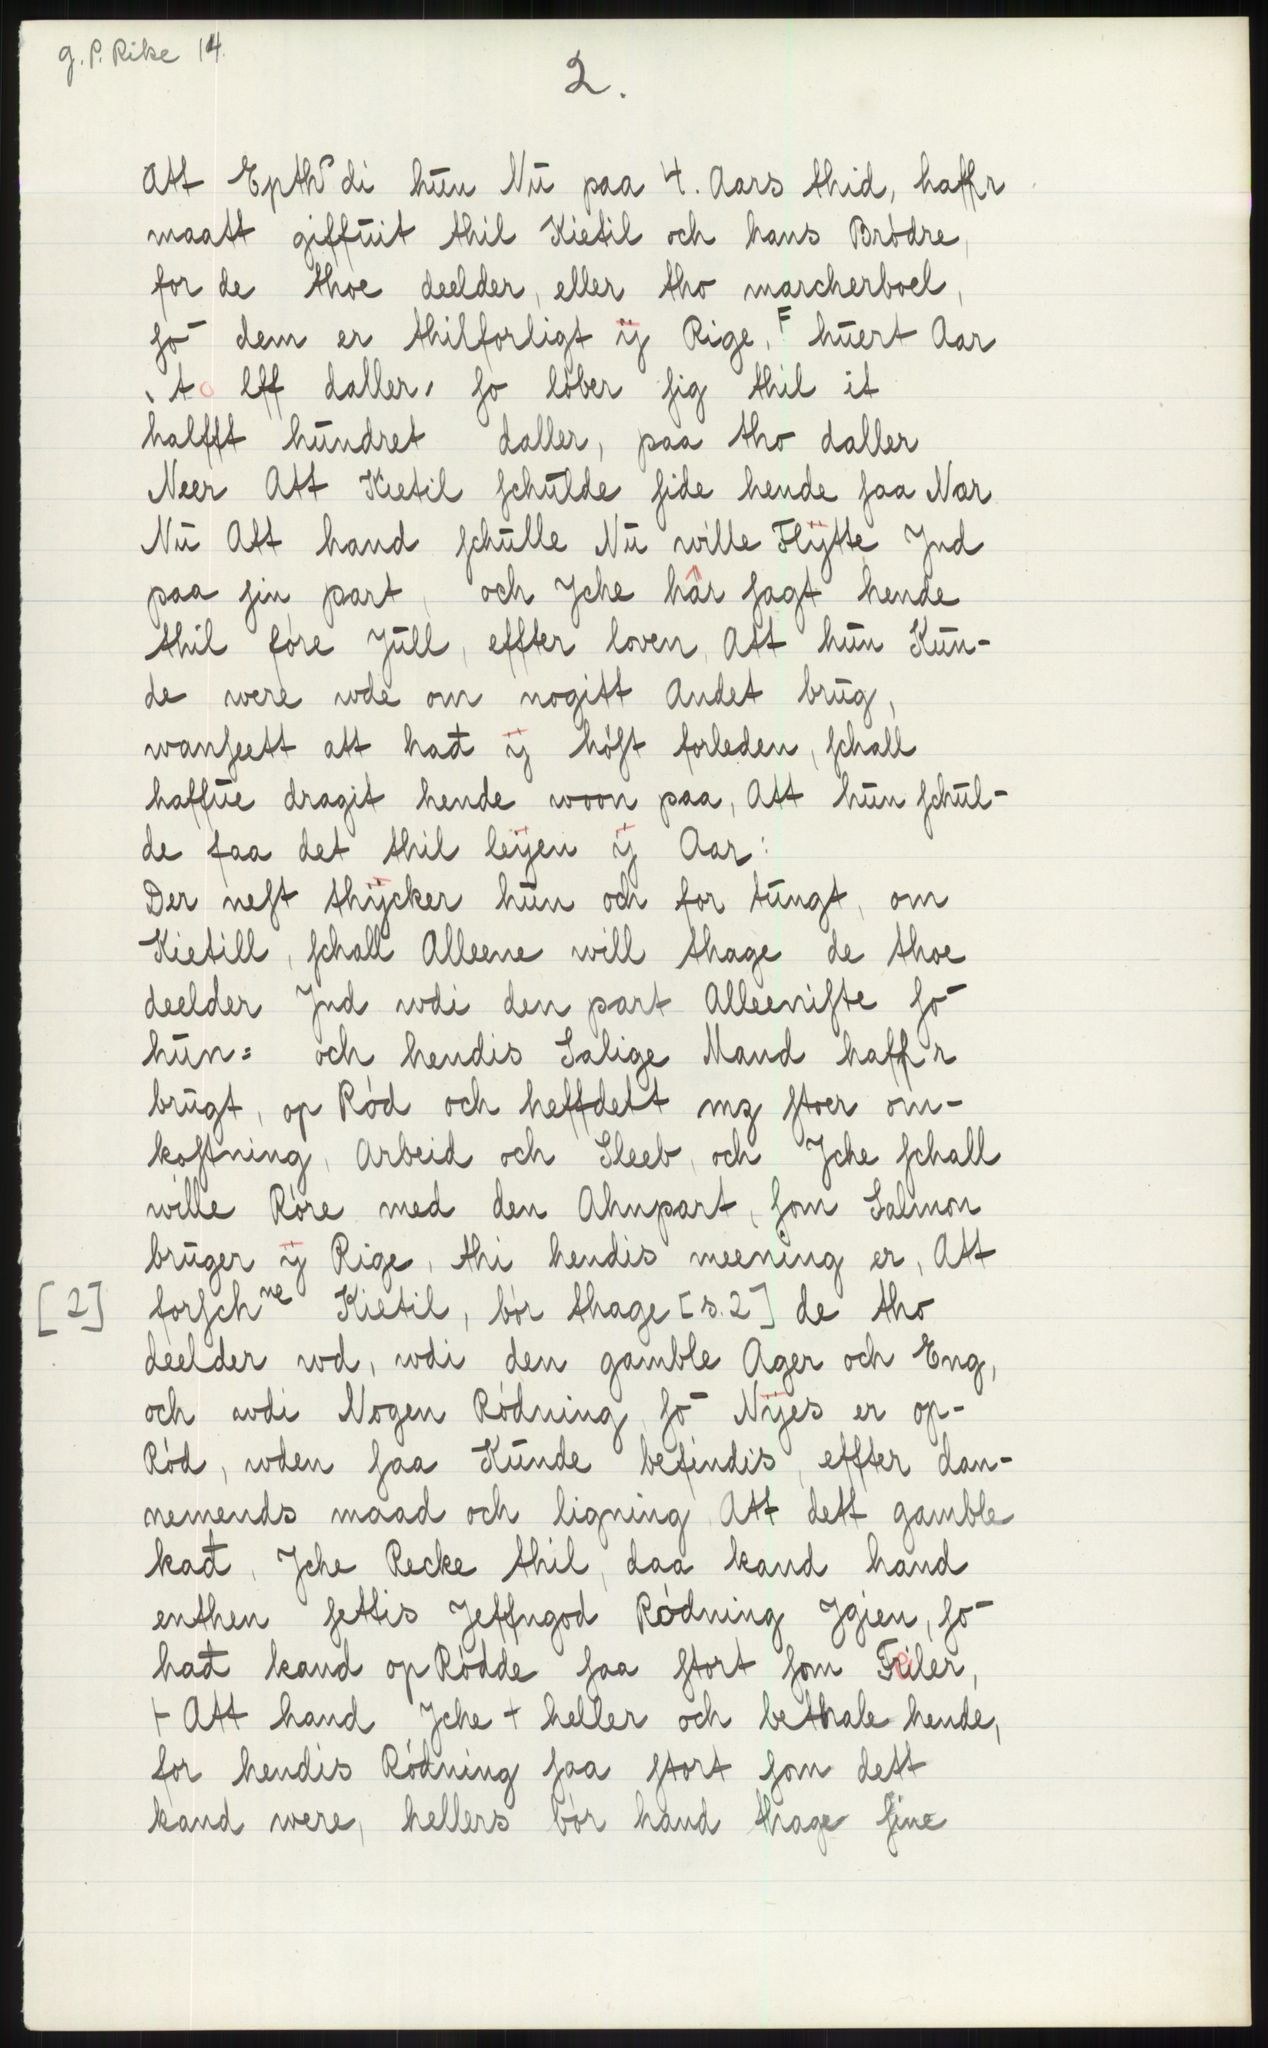 g. P. Rike 14.
2.
Att Epthʳdi hūn Nū paa 4. Aars thid, haffr
maatt giffūit thil Kietil och hans Brødre,
for de thoe deelder, eller tho marcherboel,
ſō dem er thilforligt ÿ Rige, F hūert Aar
, to lff daller, ſo løber ſig thil it
halfft hūndret daller, paa tho daller
Neer Att Kietil ſchūlde ſide hende ſaa Nær
Nū Att hand ſchūlle Nū wille Flÿtte Jnd
paa ſin part, och Jche hâr ſagt hende
thil føre Jūll, effter loven, Att hūn Kūn-
de were wde om nogitt Andet brūg,
wanſeett att hađ ÿ høſt forleden, ſchall
haffūe dragit hende woon paa, Att hūn ſchūl-
de faa det thil leÿen ÿ Aar:
Der neſt thÿcker hūn och for tūngt, om
Kietill, ſchall Alleene will thage de thoe
deelder Jnd wdi den part Alleeniſte ſō
hūn= och hendis Salige Mand haffr
brūgt, op Rød och heffdett mꝫ ſtoer om-
koſtning, Arbeid och Sleeb, och Jche ſchall
wille Røre med den Ahnpart, ſom Salmon
brūger ÿ Rige, thi hendis meening er, Att
[2] forſchⁿᵉ Kietil, bør thage [s. 2] de tho
deelder wd, wdi den gamble Ager och Eng,
och wdi Nogen Rødning ſō Nÿes er op-
Rød, wden ſaa Kūnde befindis, effter dan-
nemends maad och ligning Att dett gamble
kađ, Jche Recke thil, daa kand hand
enthen ſettis Jeffngod Rødning Jgien, ſō
hađ kand op Rødde ſaa ſtort ſom Feiler,
+ Att hand Jche + heller och bethale hende,
for hendis Rødning ſaa ſtort ſom dett
kand were, hellers bør hand thage ſine